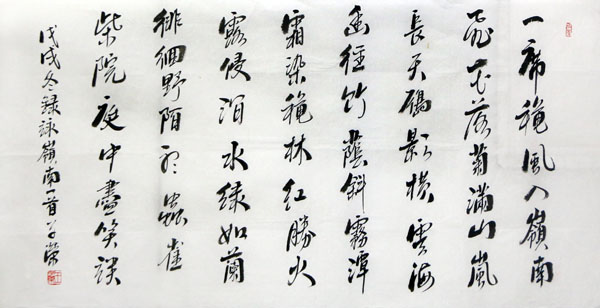 一席穐風入嶺南
飛花落菊滿山嵐
長天鴈影橫雲海
幽徑竹蔭斜霧潭
霜染穐林紅勝火
露侵洎水綠如蘭
徘徊野陌蟲雀
柴院庭中盡笑談
戊戌冬録詠嶺南一首榮